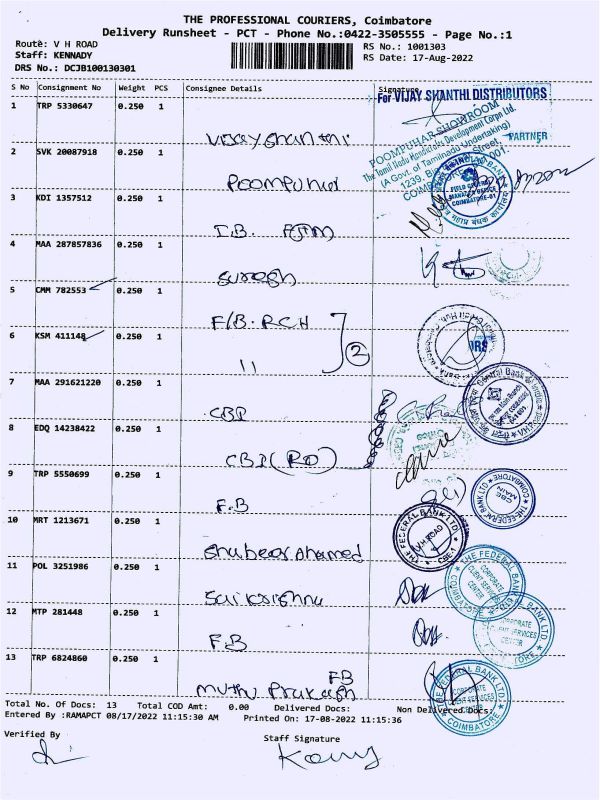 THE PROFESSIONAL COURIERS, Coimbatore
Delivery Runsheet - PCT - Phone No.:0422-3505555 - Page No.:1
Route: V H ROAD RS No.: 1001303
Staff: KENNADY RS Date: 17-Aug-2022
DRS No.: DCJB100130301
S No Consignment No Weight PCS Consignee Details Signature
For VIJAY SHANTHI DISTRIBUTORS
PARTNER
1 TRP 5330647 0.250 1 Vijay Shanthi
POOMPUHAR SHOWROOM
The Tamil Nadu Handicrafts Development Corp Ltd.
(A Govt. of Tamilnadu Undertaking)
2 SVK 20087918 0.250 1 Poompuhar
3 KDI 1357512 0.250 1 I.B.
4 MAA 287857836 0.250 1 Suresh
5 CMM 782553 0.250 1 F/B. RCH
6 KSM 411148 0.250 1 11 2
7 MAA 291621220 0.250 1 CBI
Central Bank of India
8 EDQ 14238422 0.250 1 CBI (RO)
9 TRP 5550699 0.250 1 F.B
THE FEDERAL BANK LTD COIMBATORE
CBE MAIN
10 MRT 1213671 0.250 1 Shubeer Ahamed
THE FEDERAL BANK LTD
VH ROAD
11 POL 3251986 0.250 1 Saikrishna
THE FEDERAL BANK LTD
CORPORATE CLIENT SERVICES CENTER
COIMBATORE
12 MTP 281448 0.250 1 F.B
CORPORATE CLIENT SERVICES CENTER
13 TRP 6824860 0.250 1 Muthu Prakash FB
THE FEDERAL BANK LTD
CORPORATE CLIENT SERVICES CENTER
COIMBATORE
Total No. Of Docs: 13 Total COD Amt: 0.00 Delivered Docs: Non Delivered Docs:
Entered By :RAMAPCT 08/17/2022 11:15:30 AM Printed On: 17-08-2022 11:15:36
Verified By Staff Signature